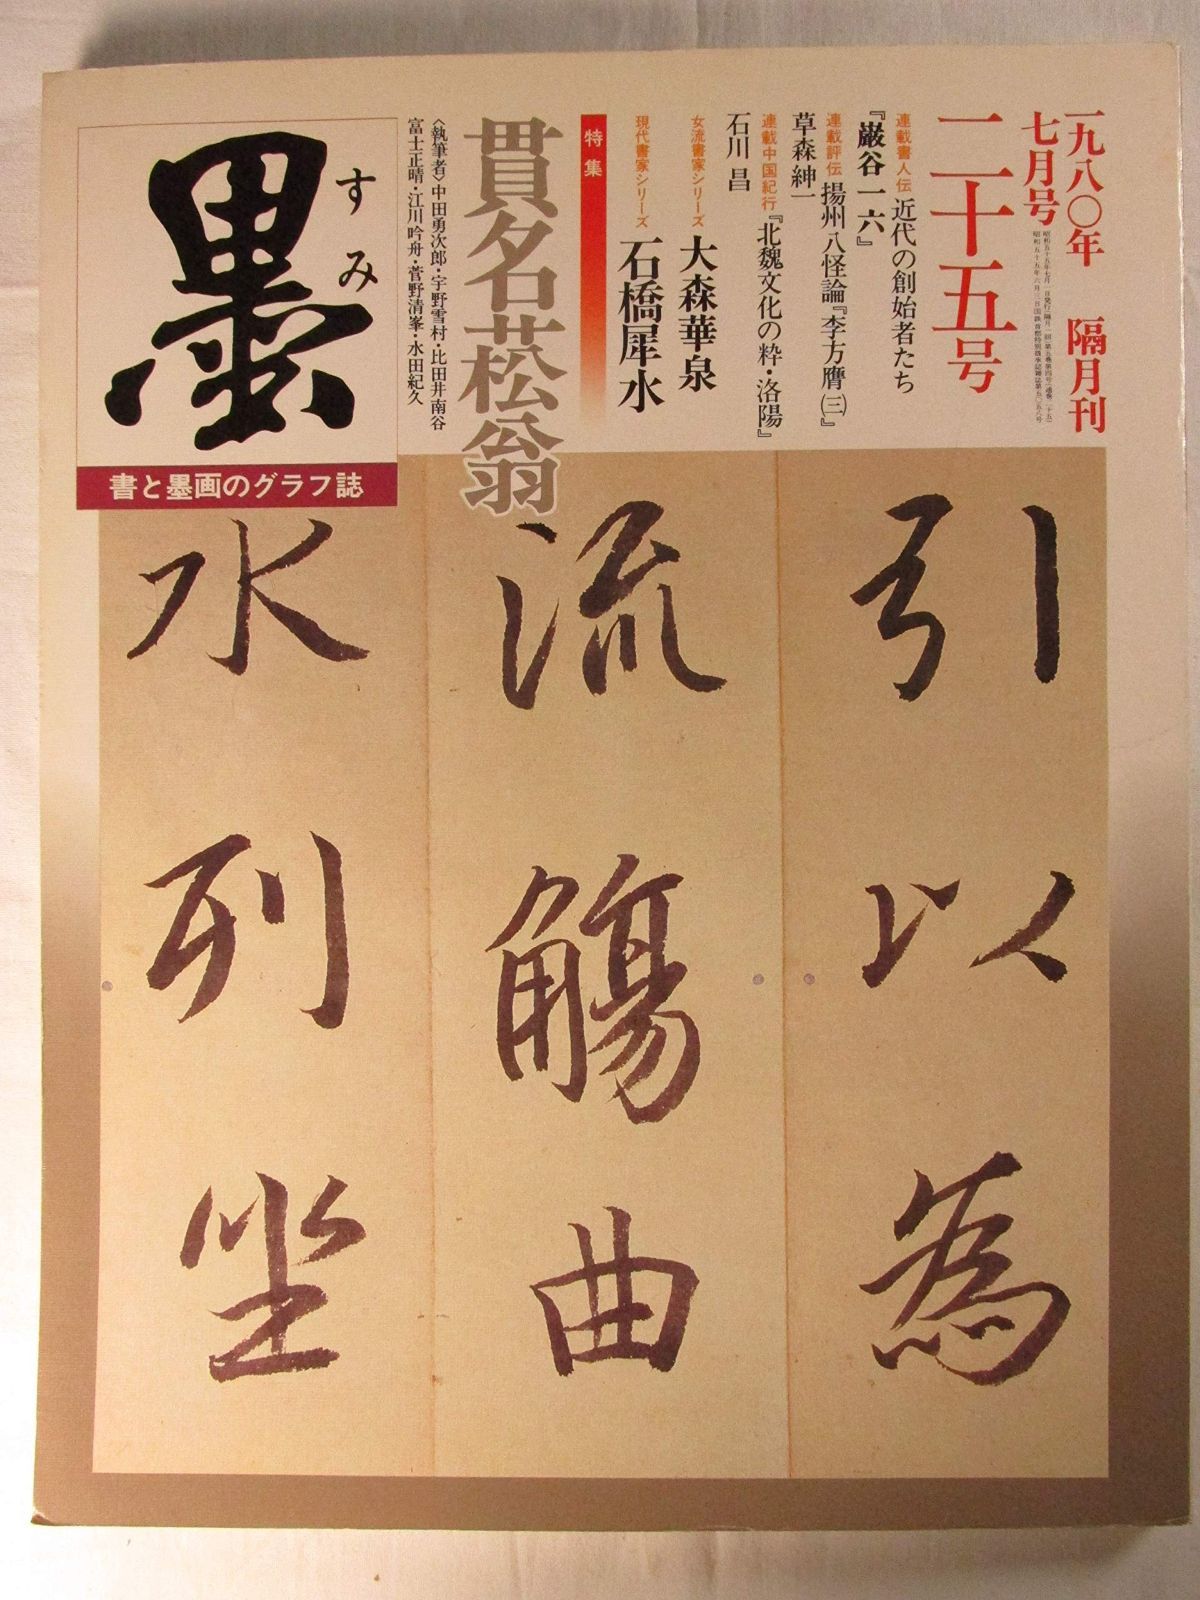 一九八〇年 隔月刊
七月号
昭和五十五年七月一日発行(隔月一回)第五巻第四号(通巻二十五)
二十五号
連載書人伝 近代の創始者たち
『巌谷一六』
連載評伝 揚州八怪論『李方膺(三)』
草森紳一
連載中国紀行『北魏文化の粋・洛陽』
石川 昌
女流書家シリーズ 大森華泉
現代書家シリーズ 石橋犀水
特集
貫名菘翁
〈執筆者〉中田勇次郎・宇野雪村・比田井南谷
富士正晴・江川吟舟・菅野清峯・水田紀久
すみ
墨
書と墨画のグラフ誌
引以為
流觴曲
水列坐